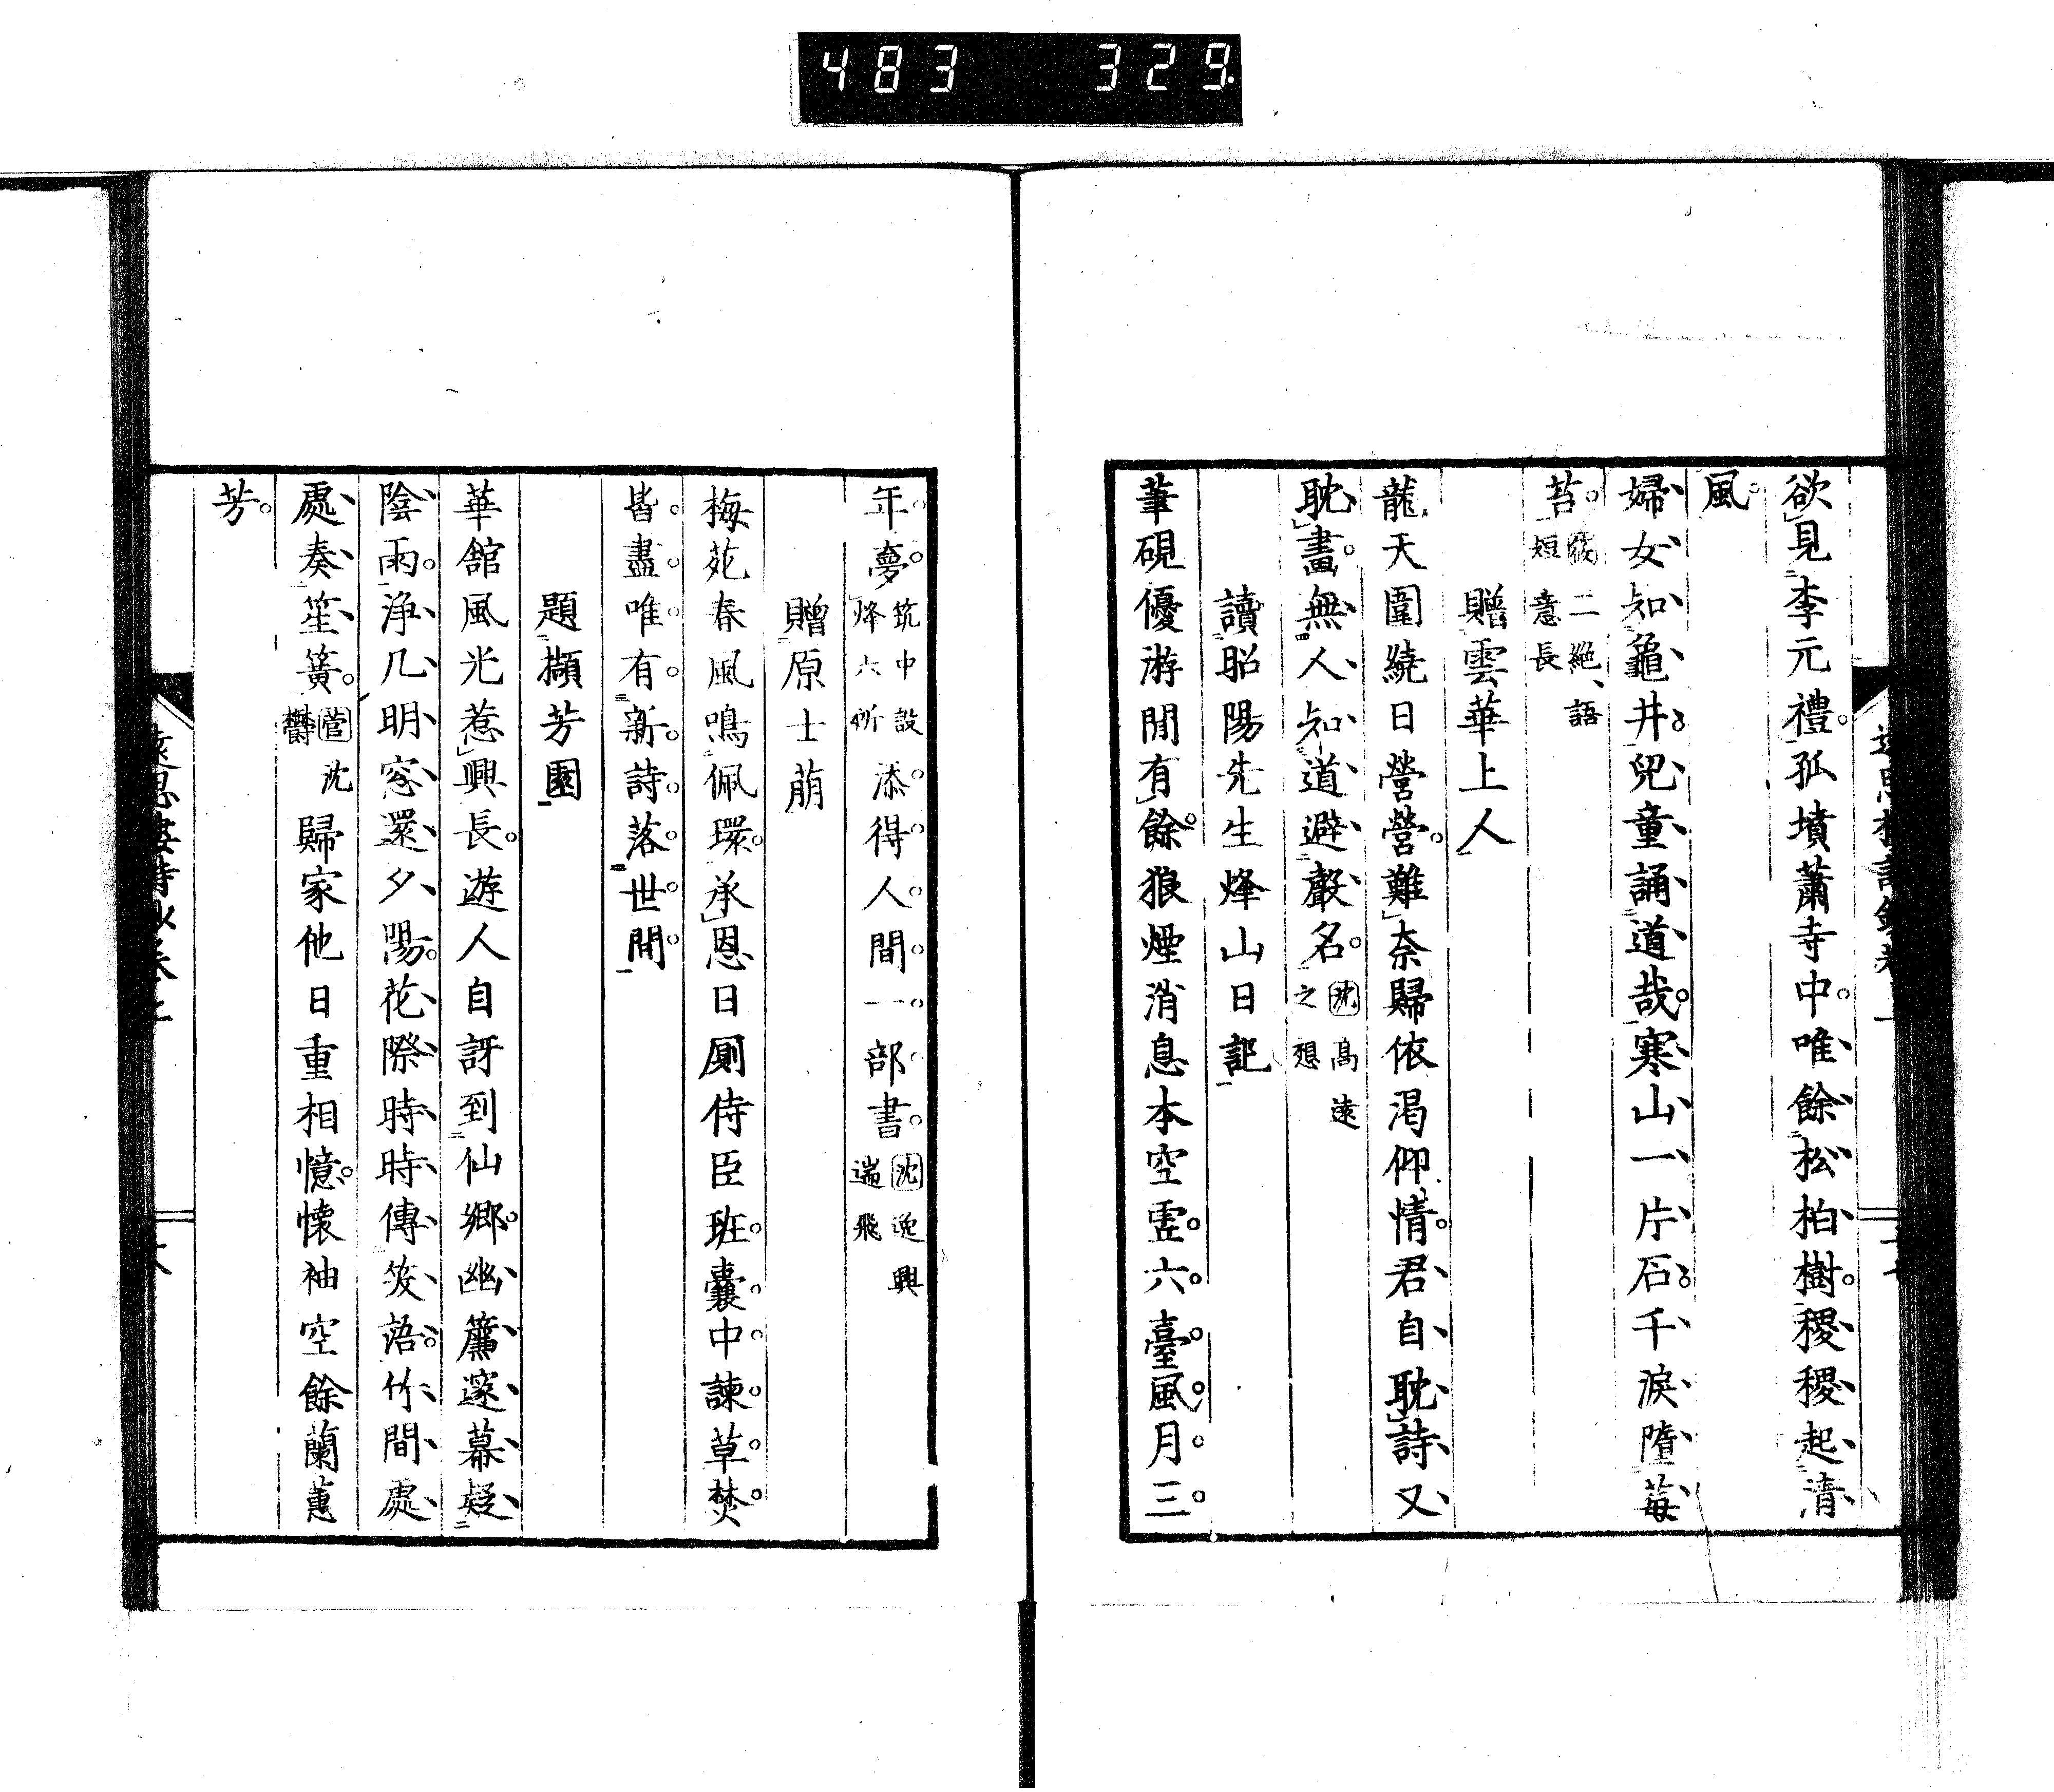 483 329
欲見李元禮。孤墳蕭寺中。唯餘松柏樹。稷稷起清
風。
婦女知龜井。兒童誦道哉。寒山一片石。千淚墮莓
苔。二絕、語短意長
贈雲華上人
龍天圍繞日營營。難奈歸依渴仰情。君自耽詩又
耽畫。無人知道避聲名。沈高遠之想
讀昭陽先生烽山日記
筆硯優游閒有餘。狼煙消息本空虛。六臺風月三
年夢。筑中設烽六所添得人間一部書。沈逸興遄飛
贈原士萠
梅苑春風鳴佩環。承恩日厠侍臣班。囊中諫草焚
皆盡。唯有新詩落世間。
題擷芳園
華館風光惹興長。遊人自訝到仙鄉。幽簾邃幕疑
陰雨。淨几明窓還夕陽。花際時時傳笑語。竹間處
處奏笙簧。菅沈欝歸家他日重相憶。懷袖空餘蘭蕙
芳。
遠思樓詩鈔卷上